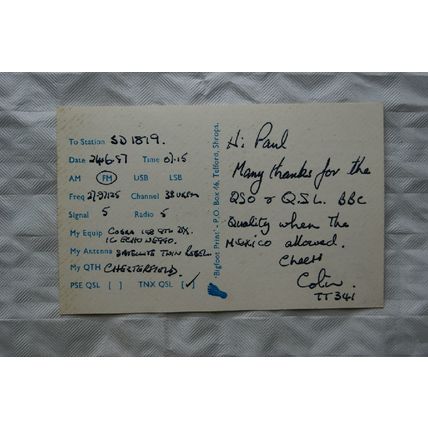 To Station SD1819.
Date 24687 Time 01.15
AM FM USB LSB
Freq 27.97125 Channel 38 UKFM
Signal 5 Radio 5
My Equip COBRA 148 GTL DX.
My Antenna SATELLITE TWIN
My QTH CHESTERFIELD.
PSE QSL [ ] TNX QSL [✓]
'Bigfoot Print' - P.O. Box 46, Telford, Shrops.
Hi Paul
Many thanks for the
QSO & QSL. BBC
Quality when the
MEXICO allowed.
Cheers
Colin
TT341